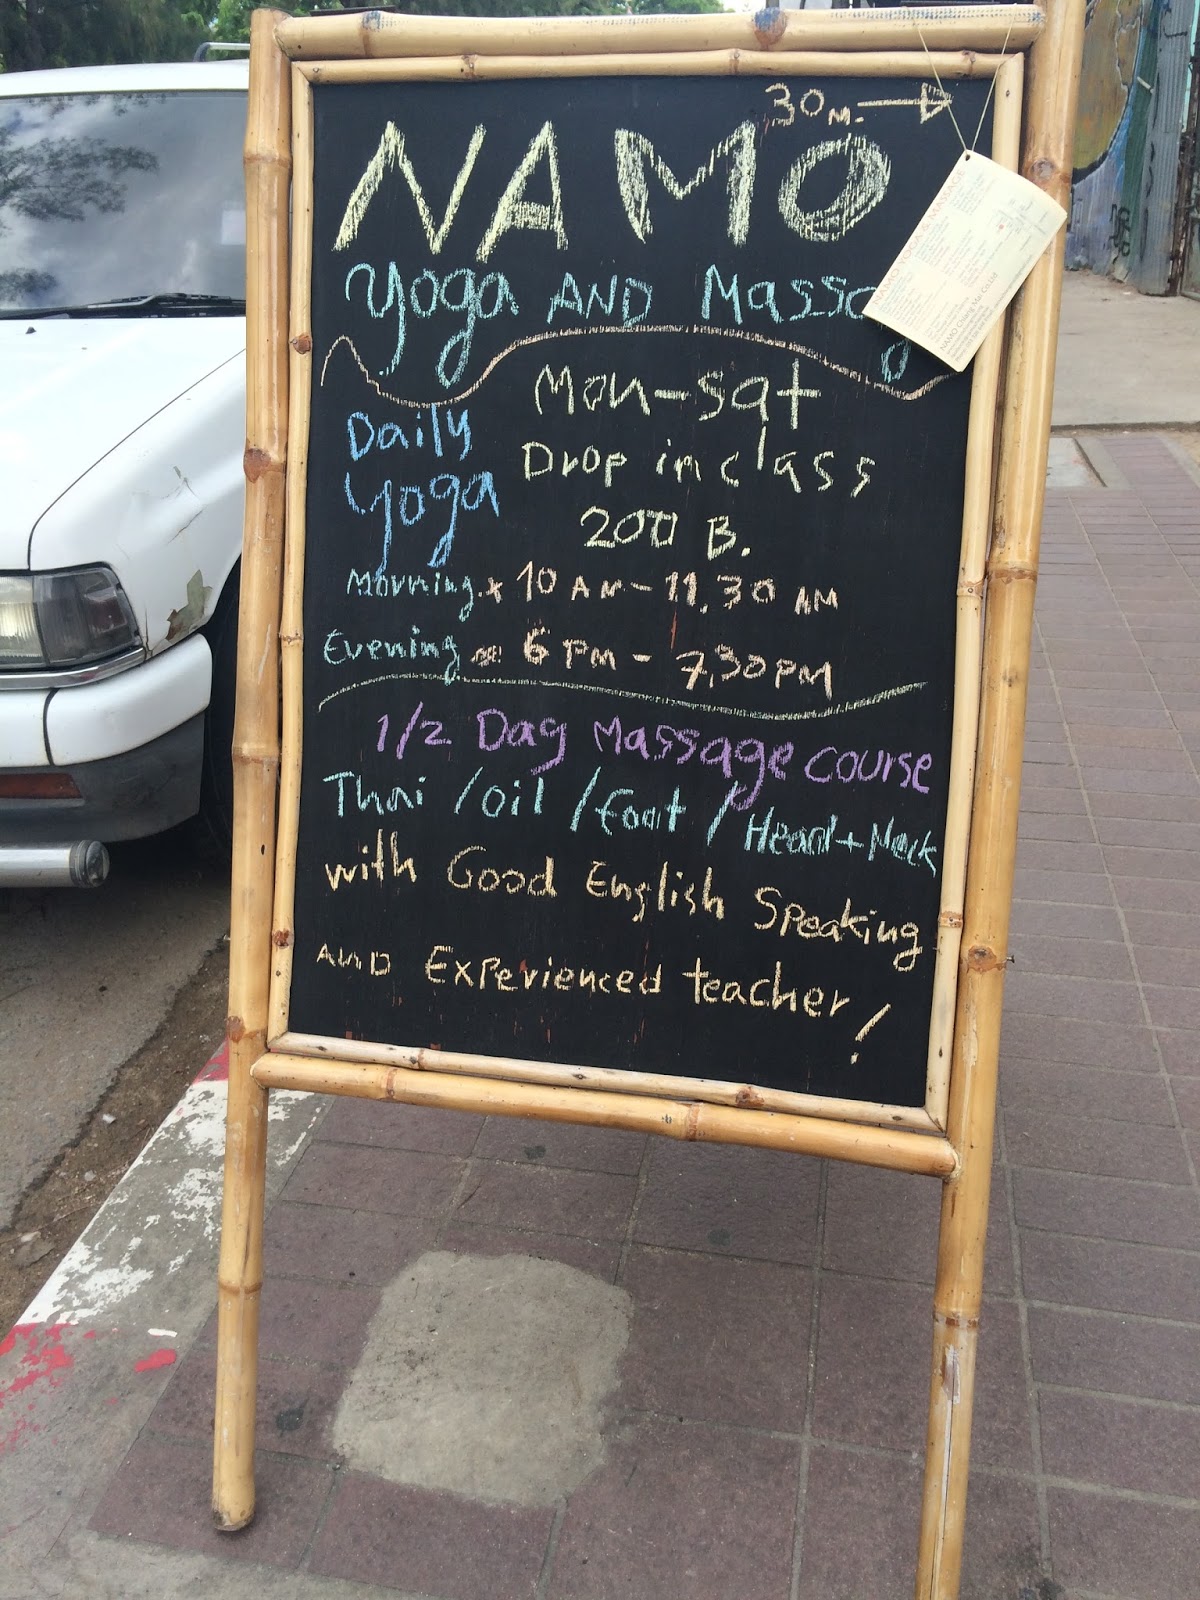 30 M.
NAMO
Yoga AND Massag
Mon-Sat
Daily
Yoga
Drop in class
200 B.
Morning 10 AM - 11.30 AM
Evening 6 PM - 7.30 PM
1/2 Day Massage course
Thai / oil / foot / Head + Neck
with Good English Speaking
AND Experienced teacher!
NAMO YOGA & MASSAGE
NAMO Chiang Mai Co.Ltd